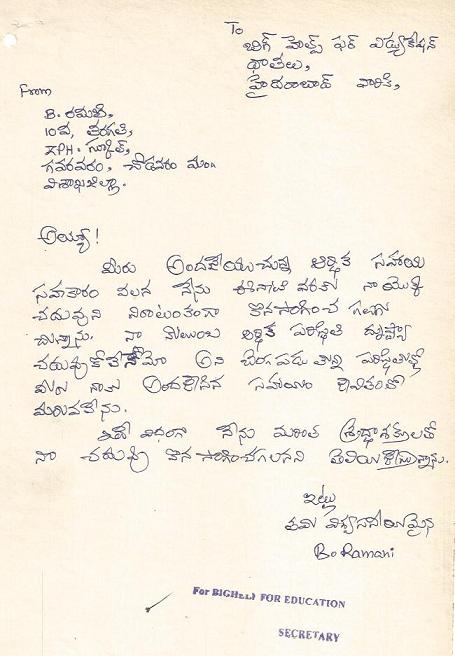 To
బిగ్ హెల్ప్ ఫర్ ఎడ్యుకేషన్
దాతలు,
హైదరాబాద్ వారికి,
From
B. రమణి,
10వ, తరగతి,
ZPH. స్కూల్,
గవరవరం, చోడవరం మం॥
విశాఖజిల్లా.
అయ్యా!
మీరు అందచేయుచున్న ఆర్థిక సహాయ
సహకారం వలన నేను ఈనాటి వరకు నా యొక్క
చదువుని నిరాటంకంగా కొనసాగించ గలుగు
చున్నాను. నా కుటుంబ ఆర్థిక పరిస్థితి దృష్ట్యా
చదువుకోలేనేమో అని బెంగపడుతున్న పరిస్థితుల్లో
మీరు నాకు అందజేసిన సహాయం జీవితంలో
మరువలేను.
ఇదే విధంగా నేను మరింత శ్రద్ధాశక్తులతో
నా చదువు కొనసాగించగలనని తెలియజేస్తున్నాను.
ఇట్లు
తమ విశ్వసనీయమైన
B. Ramani
For BIGHELP FOR EDUCATION
SECRETARY